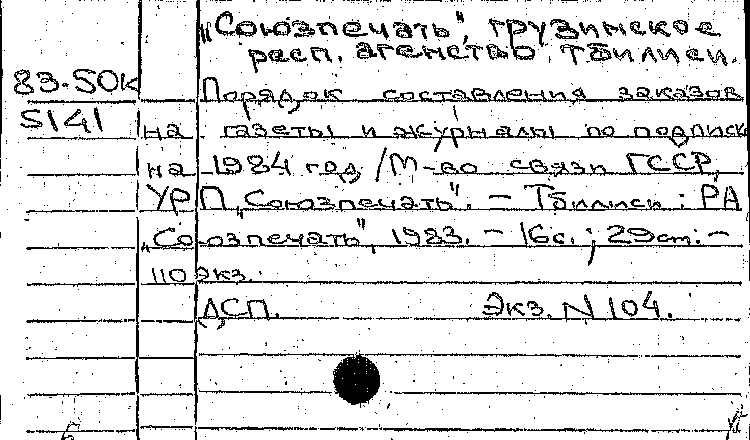 „Союзпечать", грузинское
респ. агенство, Тбилиси.
83-50к
5141
Порядок составления заказов
на газеты и журналы по подписк
на 1984 год /М-во связи ГССР,
УРП „Союзпечать". – Тбилиси : РА
„Союзпечать", 1983. – 16с. ; 29см. –
110 экз.
ДСП. Экз. N 104.